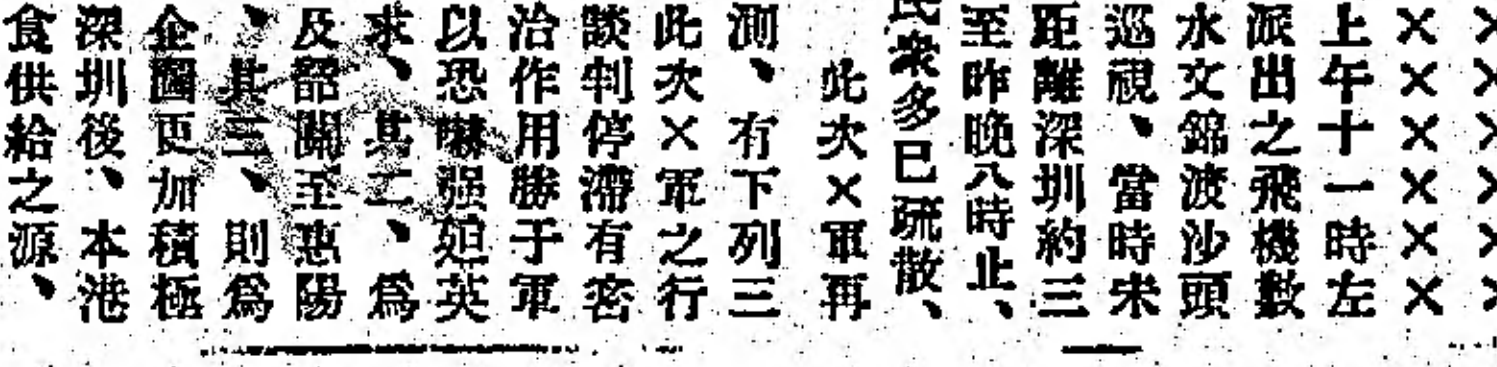 ×××××
×××××
上午十一時左
派出之飛機數
水文錦渡沙頭
巡視、當時未
距離深圳約三
至昨晚八時止、
民衆多已疏散、
此次×軍再
測、有下列三
此次×軍之行
談判停滯有密
洽作用勝于軍
以恐嚇强廹英
求、其二、爲
及韶關至惠陽
、其三、則爲
企圖更加積極
深圳後、本港
食供給之源、